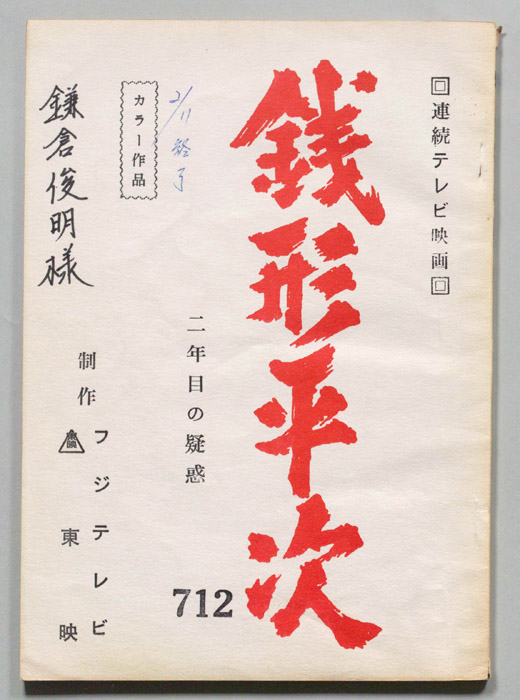 回連続テレビ映画回
銭形平次
二年目の疑惑
712
2/11 終了
カラー作品
鎌倉俊明様
制作
フジテレビ
東映